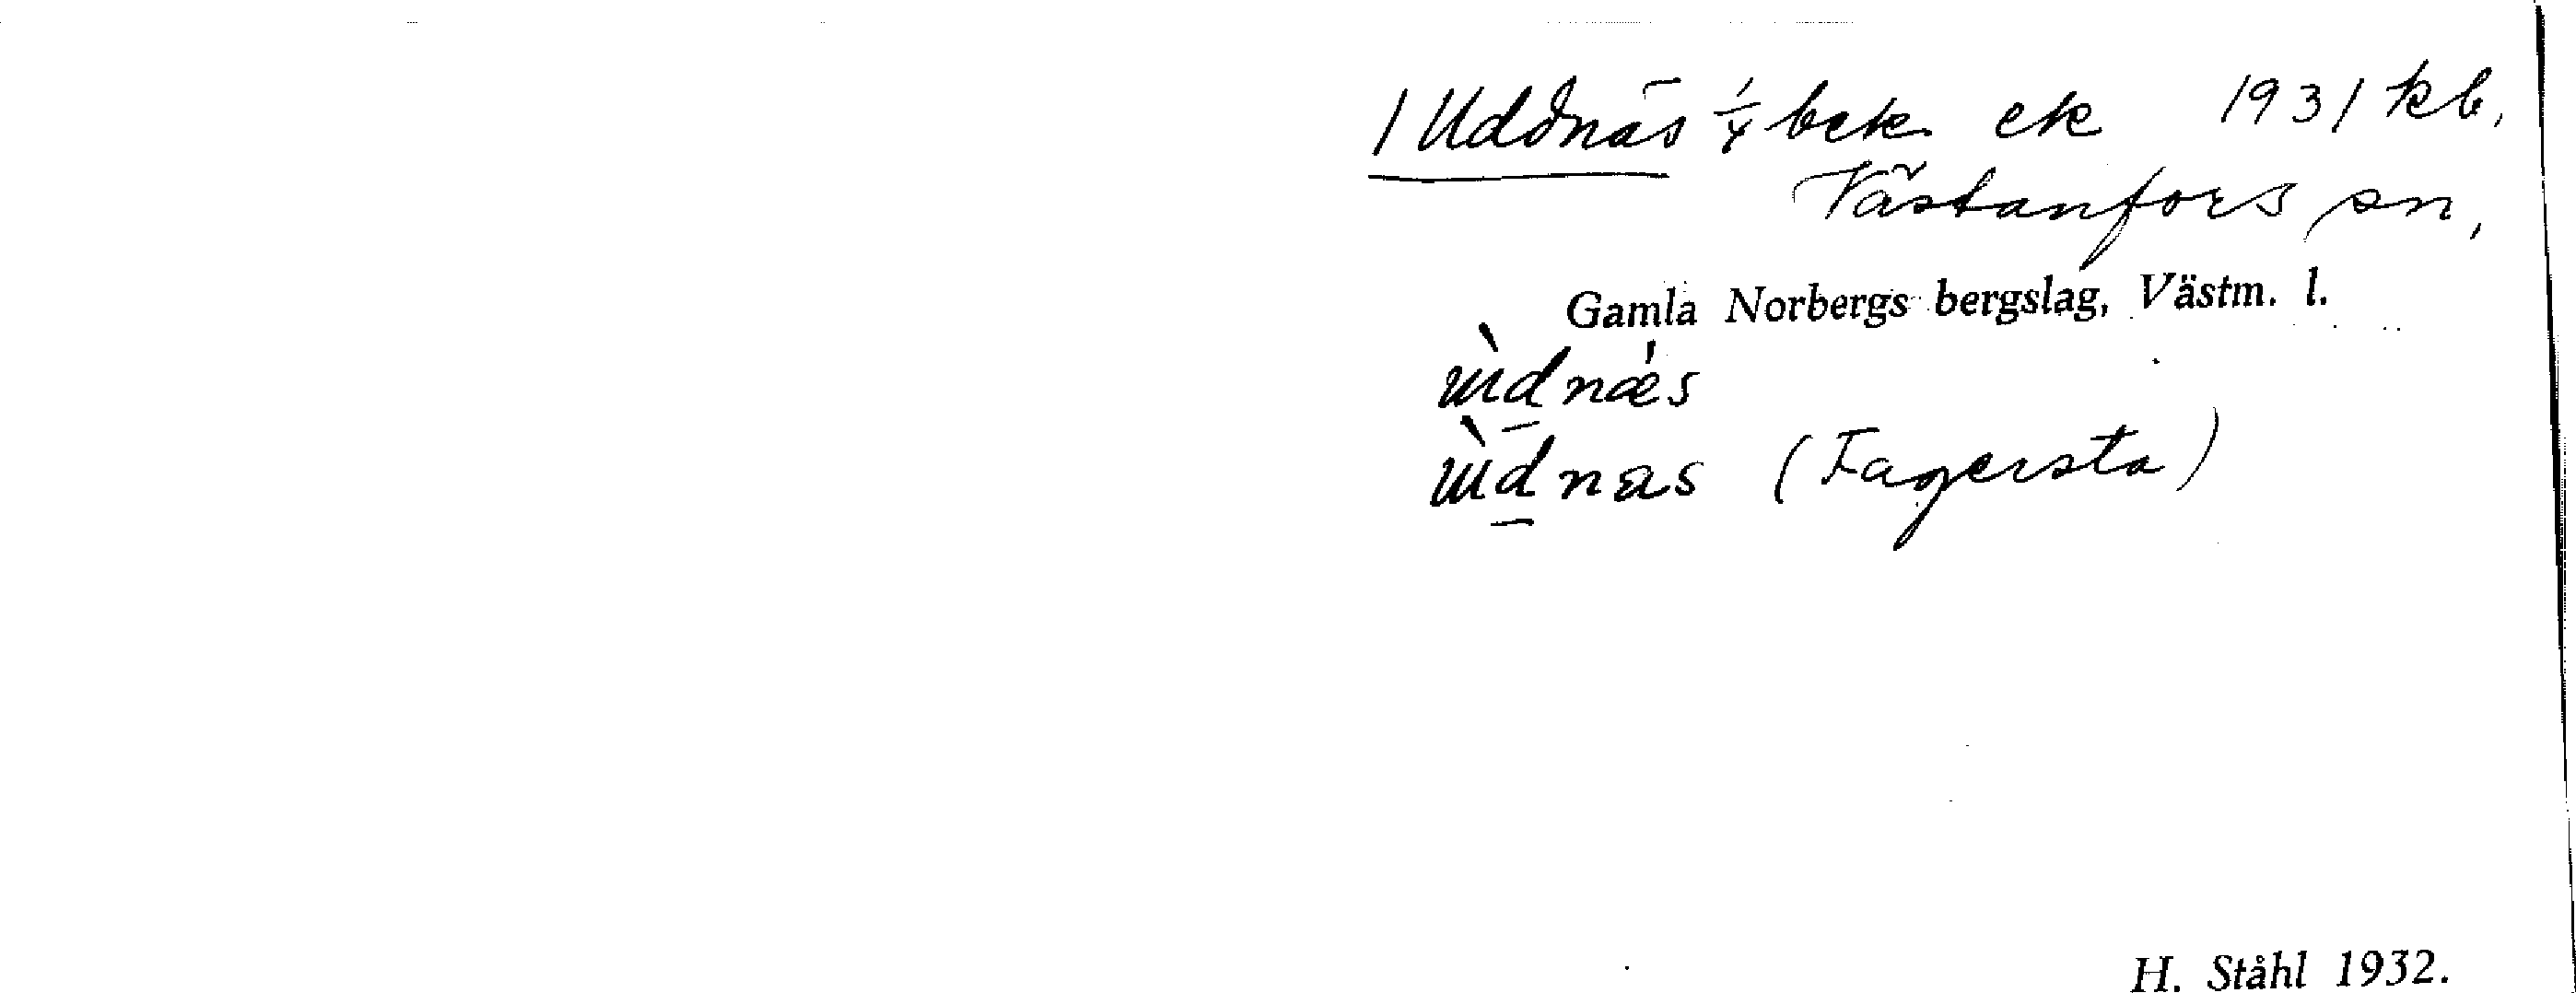 1 Uddnäs ¼ bek ek 1931 kb.
Västanfors sn,
Gamla Norbergs bergslag, Västm. l.
ùdnǽs
ùdnæs (Fagersta)
H. Ståhl 1932.